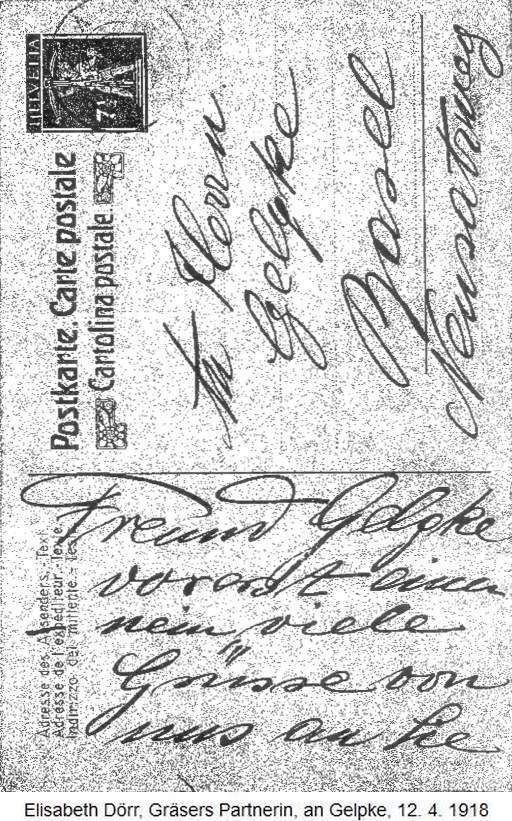 HELVETIA
7½
Postkarte. Carte postale
Cartolina postale
Herrn
Gelpke
Basel
Neusatzweg
Adresse des Absenders. - Text
Adresse de l'expéditeur. - Texte
Indirizzo del mittente. -
Freund Gelpke
vorerst einen
nein, viele
Grüsse von
uns an Sie
Elisabeth Dörr, Gräsers Partnerin, an Gelpke, 12. 4. 1918